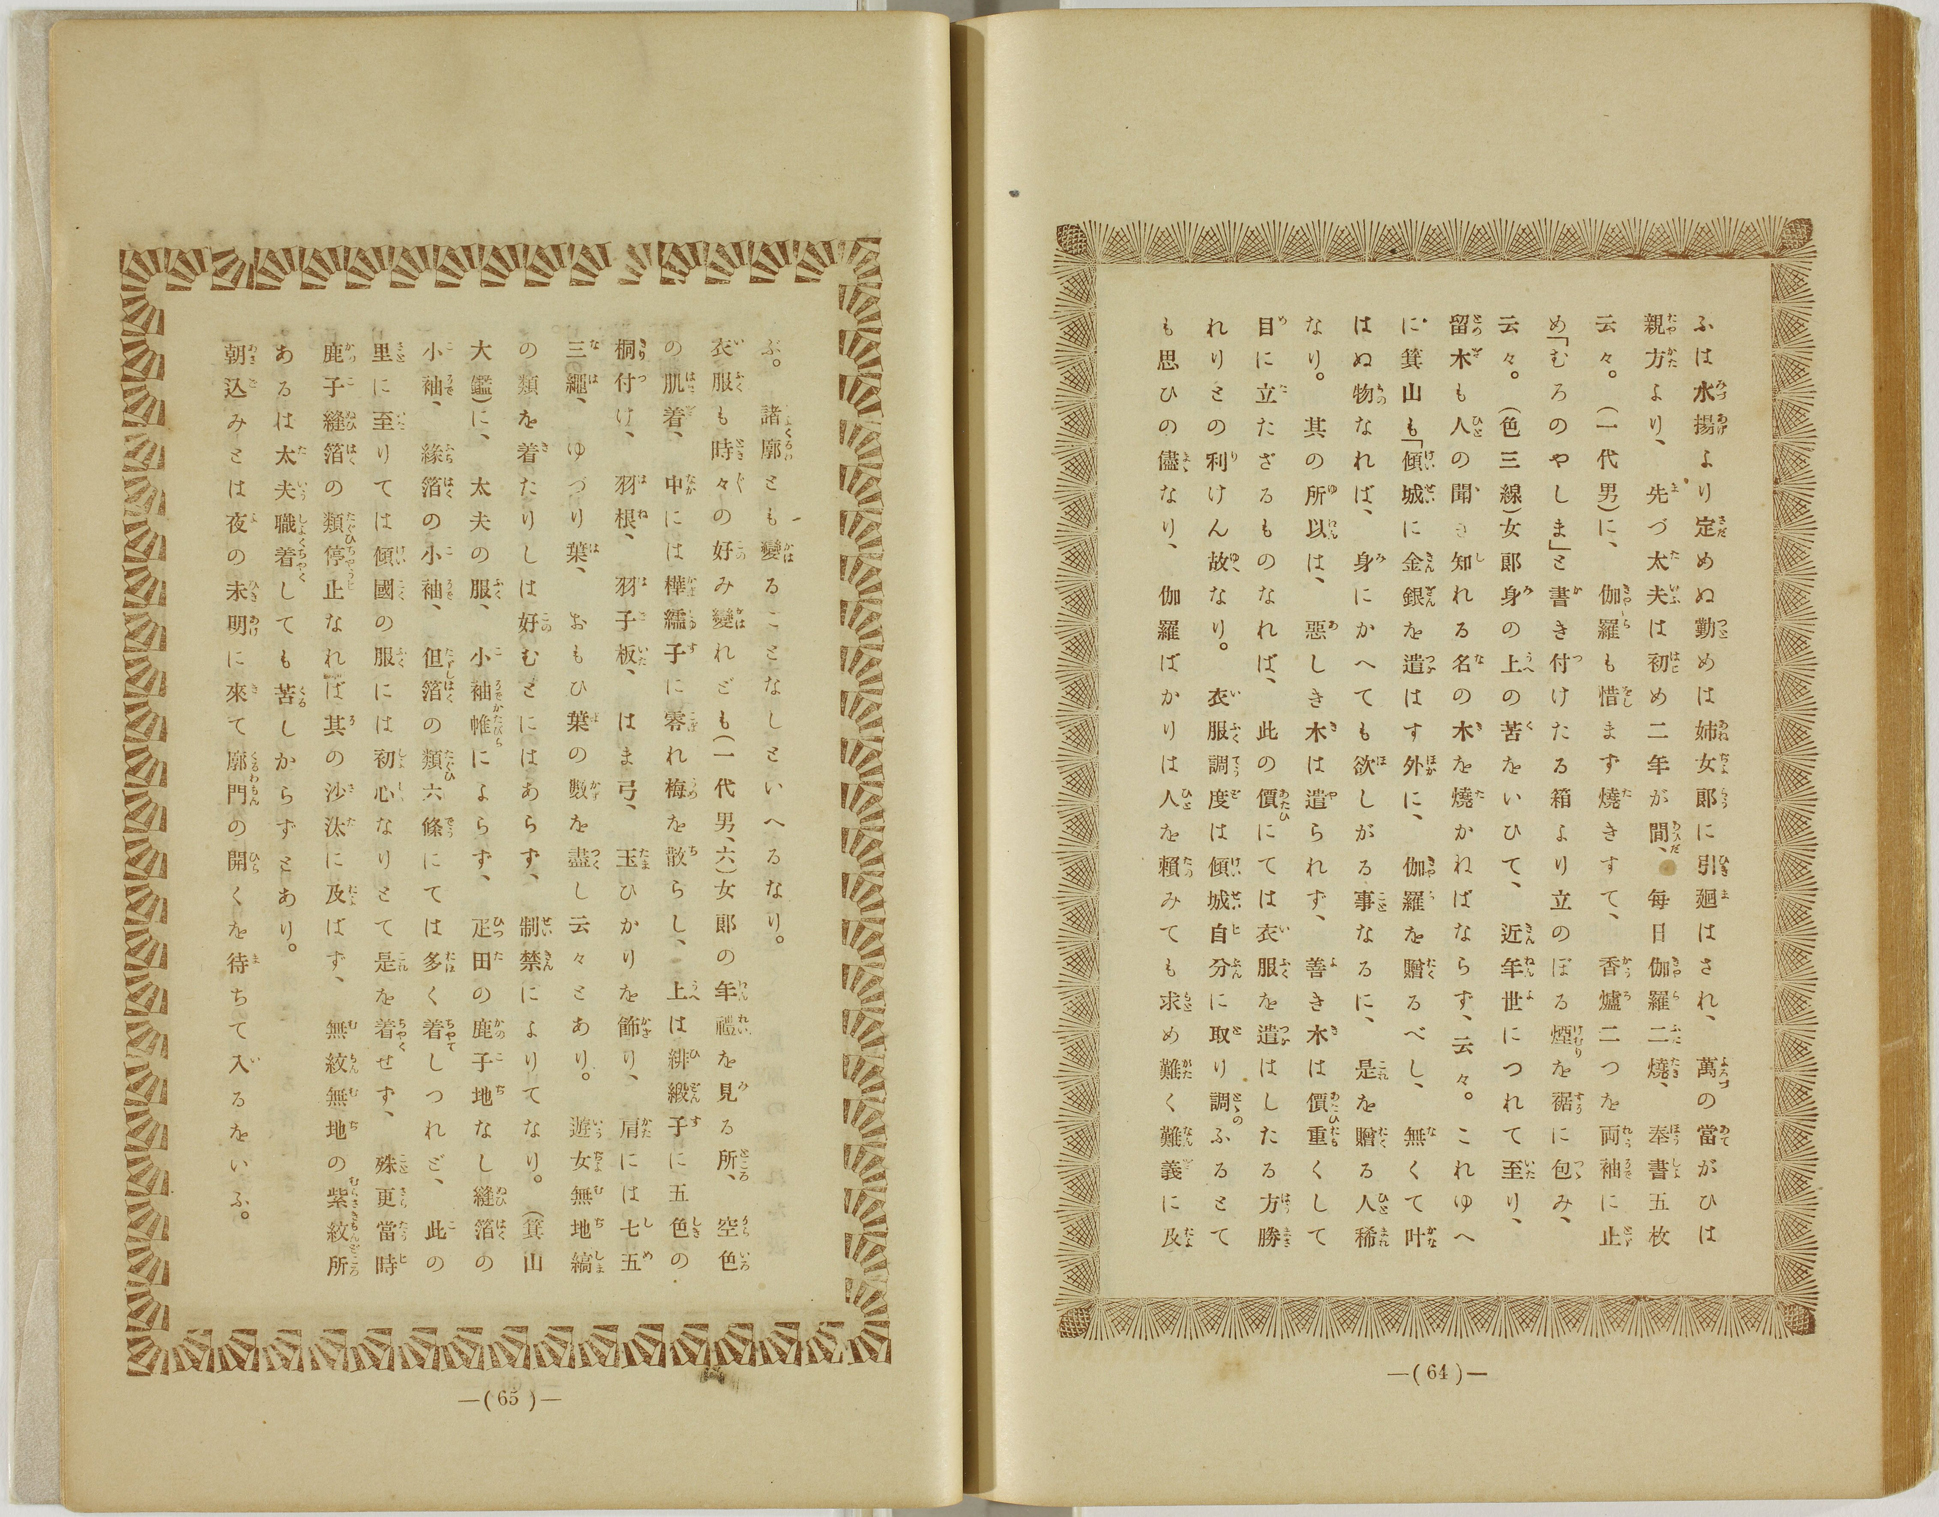 ふは水揚より定めぬ勤めは姉女郎に引廻はされ、萬の當がひは
親方より、先づ太夫は初め二年が間、毎日伽羅二燒、奉書五枚
云々。(一代男)に、伽羅も惜ます燒きすて、香爐二つを両袖に止
め「むろのやしま」と書き付けたる箱より立のぼる煙を裾に包み、
云々。(色三線)女郎身の上の苦をいひて、近年世につれて至り、
留木も人の聞き知れる名の木を燒かねばならず、云々。これゆへ
に箕山も「傾城に金銀を遣はす外に、伽羅を贈るべし、無くて叶
はぬ物なれば、身にかへても欲しがる事なるに、是を贈る人稀
なり。其の所以は、惡しき木は遣られず、善き木は價重くして
目に立たざるものなれば、此の價にては衣服を遣はしたる方勝
れりとの利けん故なり。衣服調度は傾城自分に取り調ふるとて
も思ひの儘なり、伽羅ばかりは人を賴みても求め難く難義に及
—(64)—
ぶ。諸廓とも變ることなしといへるなり。
衣服も時々の好み變れども(一代男、六)女郎の年禮を見る所、空色
の肌着、中には樺繻子に零れ梅を散らし、上は緋緞子に五色の
桐付け、羽根、羽子板、はま弓、玉ひかりを飾り、肩には七五
三繩、ゆづり葉、おもひ葉の數を盡し云々とあり。遊女無地縞
の類を着たりしは好むとにはあらず、制禁によりてなり。(箕山
大鑑)に、太夫の服、小袖帷によらず、疋田の鹿子地なし縫箔の
小袖、緣箔の小袖、但箔の類六條にては多く着しつれど、此の
里に至りては傾國の服には初心なりとて是を着せず、殊更當時
鹿子縫箔の類停止なれば其の沙汰に及ばず、無紋無地の紫紋所
あるは太夫職着しても苦しからずとあり。
朝込みとは夜の未明に來て廓門の開くを待ちて入るをいふ。
—(65)—